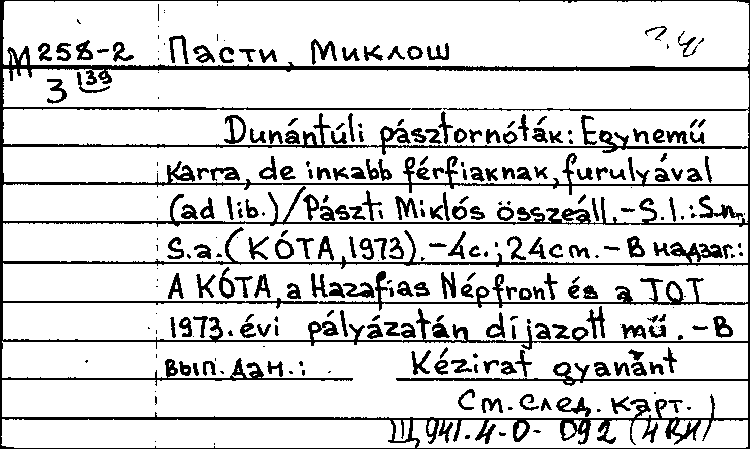 М 258-2 Пасти, Миклош
3 139
Dunántúli pásztornóták: Egynemű
karra, de inkabb férfiaknak, furulyával
(ad lib.)/Pászti Miklós összeáll.-S.l.:S.n.,
S.a.(KÓTA,1973).-4c.;24cm.-В надзаг.:
A KÓTA, a Hazafias Népfront és a TOT
1973.évi pályázatán díjazott mű.-В
вып.дан.: Kézirat gyanánt
См.след.карт.
Щ941.4-0-092 (4ВИ)